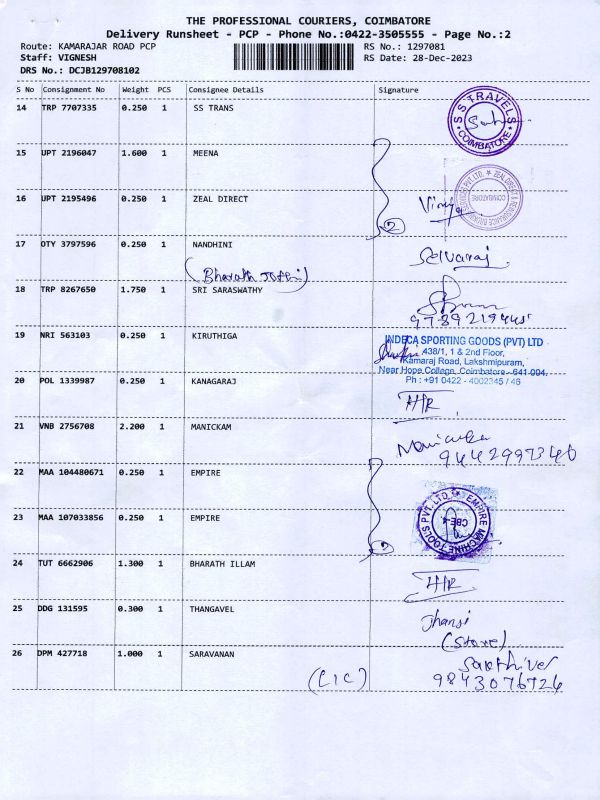 THE PROFESSIONAL COURIERS, COIMBATORE
Delivery Runsheet - PCP - Phone No.:0422-3505555 - Page No.:2
Route: KAMARAJAR ROAD PCP RS No.: 1297081
Staff: VIGNESH RS Date: 28-Dec-2023
DRS No.: DCJB129708102
S No Consignment No Weight PCS Consignee Details Signature
14 TRP 7707335 0.250 1 SS TRANS
S.S TRAVELS COIMBATORE
15 UPT 2196047 1.600 1 MEENA
16 UPT 2195496 0.250 1 ZEAL DIRECT
COIMBATORE
2
17 OTY 3797596 0.250 1 NANDHINI Selvaraj
(Bharath
18 TRP 8267650 1.750 1 SRI SARASWATHY
19 NRI 563103 0.250 1 KIRUTHIGA
INDECA SPORTING GOODS (PVT) LTD
438/1, 1 & 2nd Floor,
Kamaraj Road, Lakshmipuram,
Near Hope College, Coimbatore - 641 004.
Ph : +91 0422 - 4002345 / 46
20 POL 1339987 0.250 1 KANAGARAJ
H/R
21 VNB 2756708 2.200 1 MANICKAM
9442997340
22 MAA 104480671 0.250 1 EMPIRE
EMPIRE MACHINE TOOLS PVT. LTD.
CBE-4
23 MAA 107033856 0.250 1 EMPIRE
2
24 TUT 6662906 1.300 1 BHARATH ILLAM
H/R
25 DDG 131595 0.300 1 THANGAVEL Jhansi
(Store)
26 DPM 427718 1.000 1 SARAVANAN Sakthivel
(LIC) 9843076724